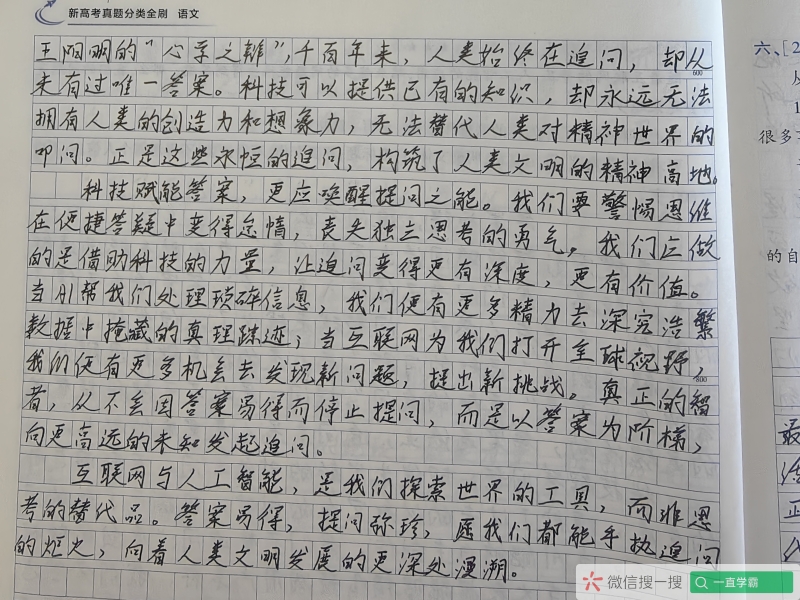 新高考真题分类全刷 语文
王阳明的“心学之辨”,千百年来,人类始终在追问,却从
600
未有过唯一答案。科技可以提供已有的知识,却永远无法
拥有人类的创造力和想象力,无法替代人类对精神世界的
叩问。正是这些永恒的追问,构筑了人类文明的精神高地。
科技赋能答案,更应唤醒提问之能。我们要警惕思维
在便捷答疑中变得怠惰,丧失独立思考的勇气。我们应做
的是借助科技的力量,让追问变得更有深度,更有价值。
当AI帮我们处理琐碎信息,我们便有更多精力去深究浩繁
数据中掩藏的真理踪迹;当互联网为我们打开全球视野,
我们便有更多机会去发现新问题,提出新挑战。真正的智
800
者,从不会因答案易得而停止提问,而是以答案为阶梯,
向更高远的未知发起追问。
互联网与人工智能,是我们探索世界的工具,而非思
考的替代品。答案易得,提问弥珍,愿我们都能手执追问
的炬火,向着人类文明发展的更深处漫溯。
六、[2
从
1
很多
的自
最
代
微信搜一搜
一直学霸